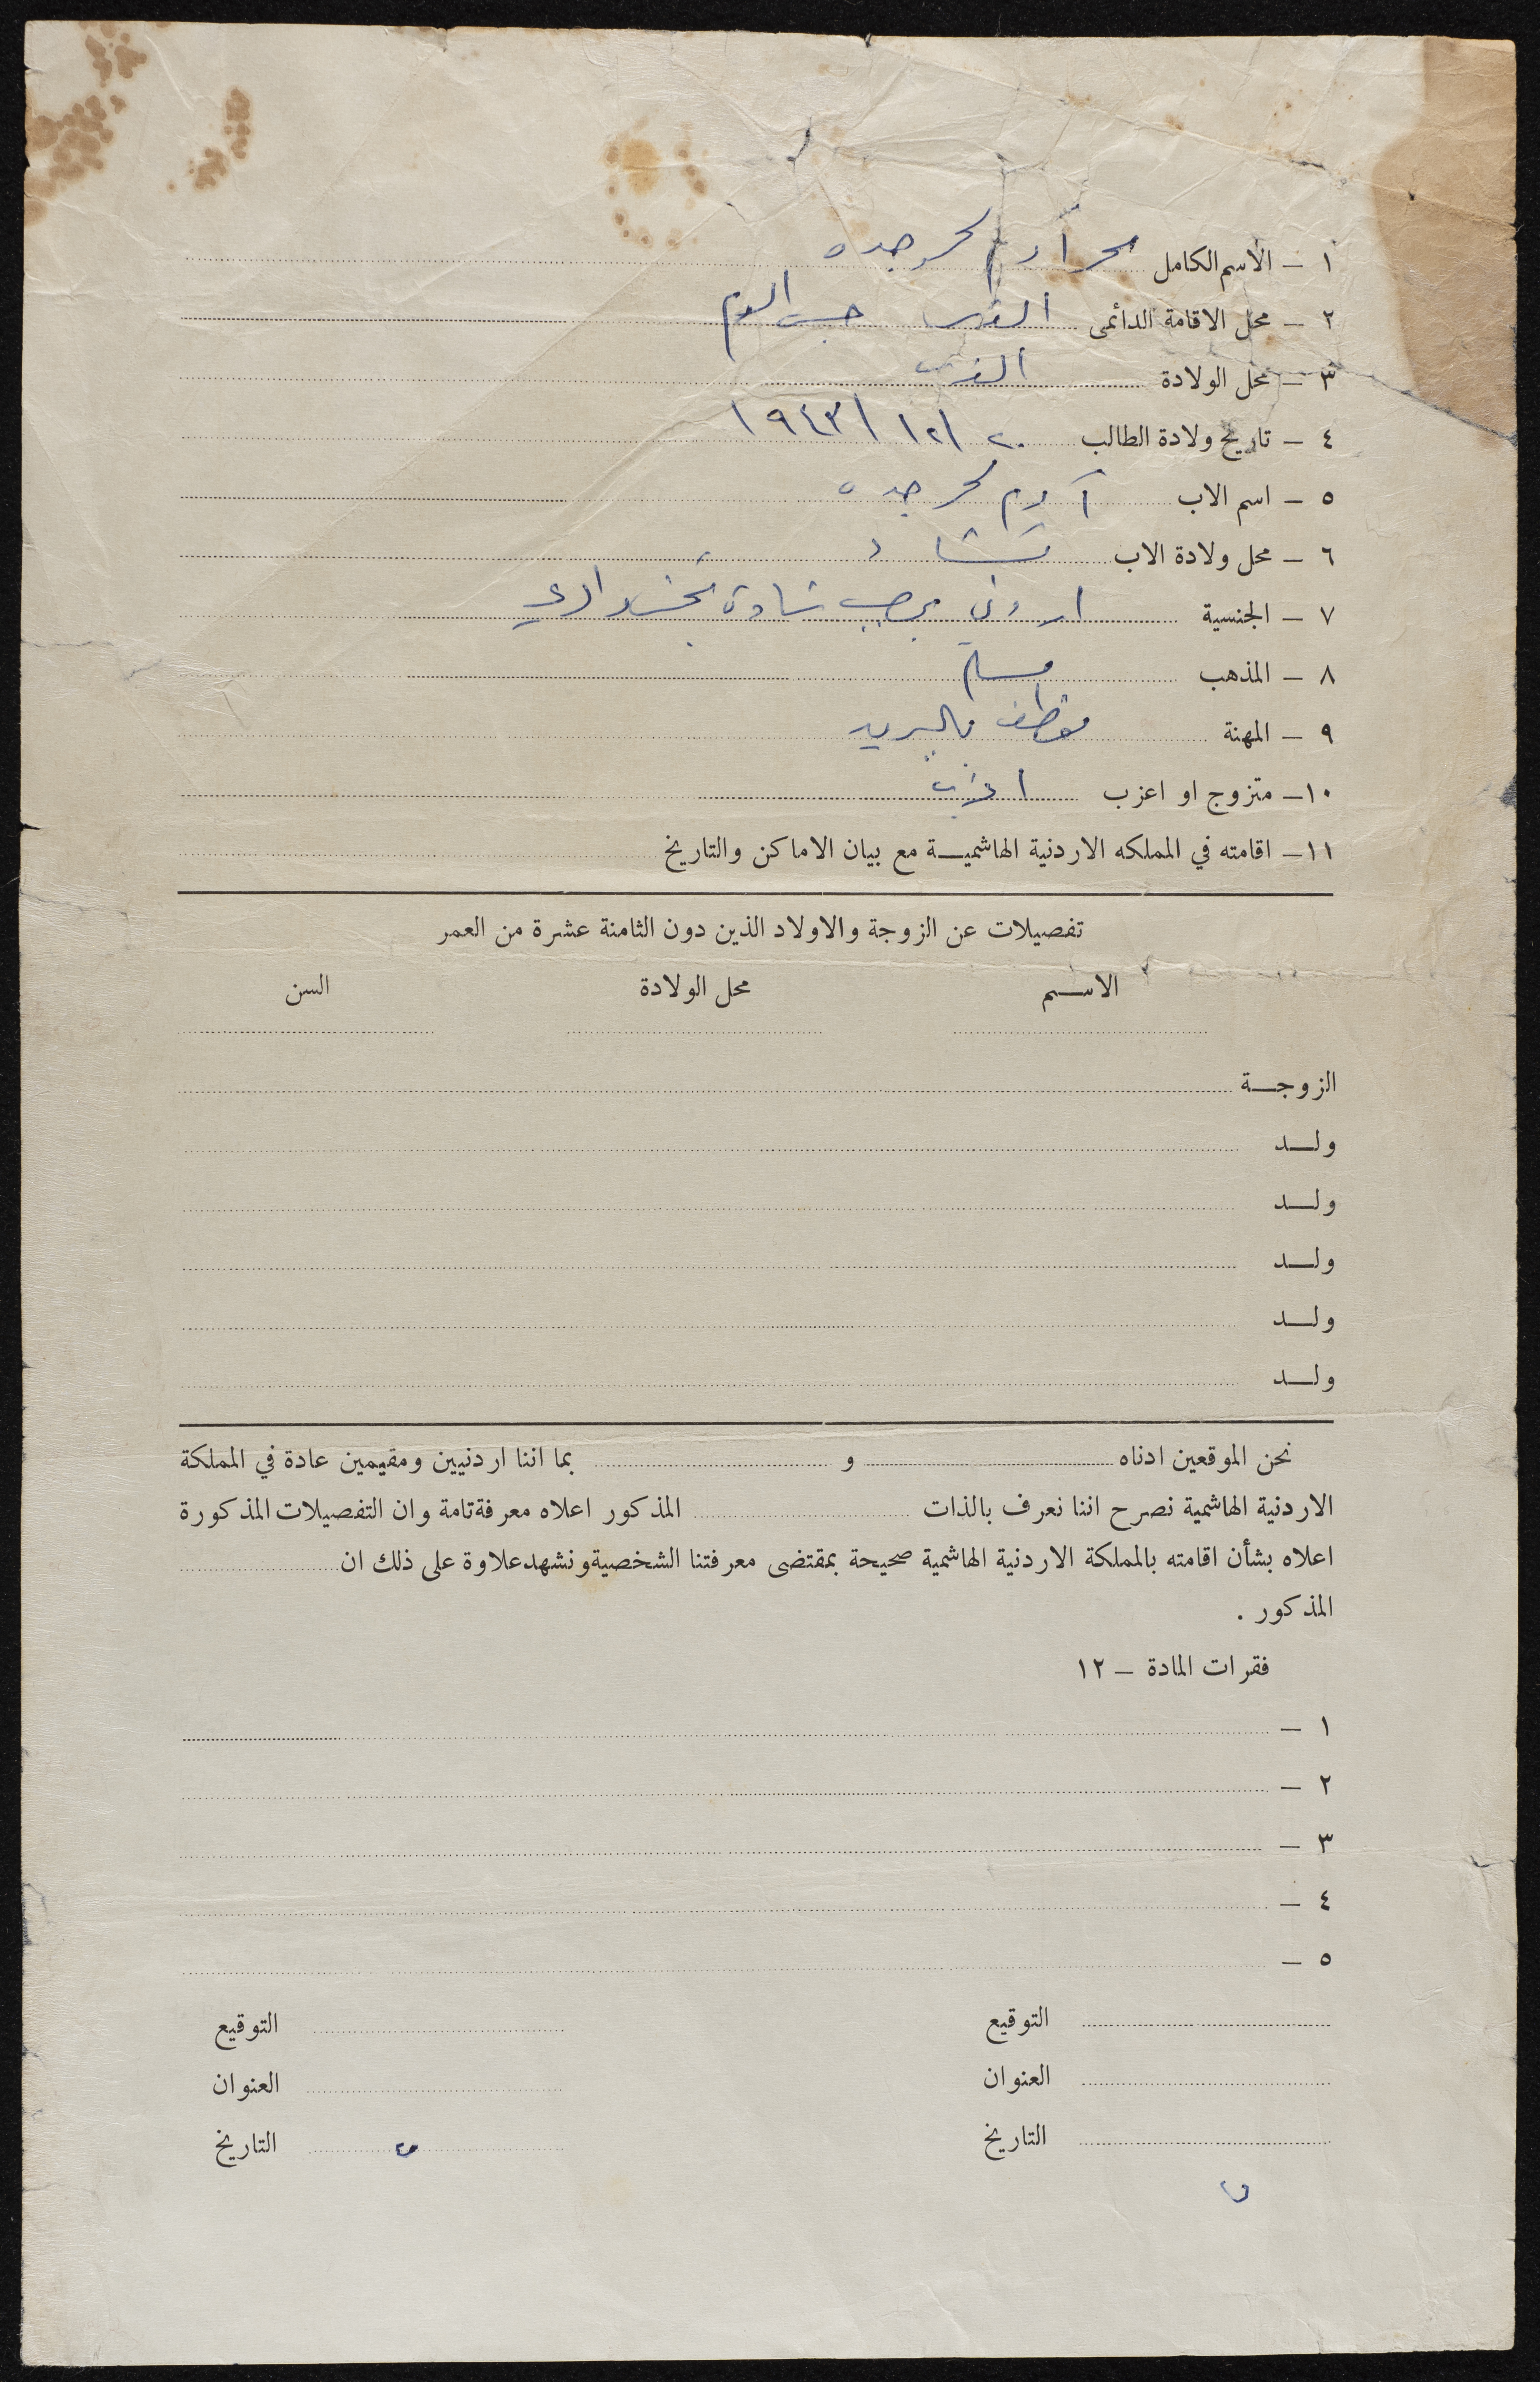 ١ – الاسم الكامل محمد آدم محمد جده
٢ – محل الاقامة الدائمى القدس حبس الدم
٣ – محل الولادة القدس
٤ – تاريخ ولادة الطالب ٢٠ / ١٢ / ١٩٤٣
٥ – اسم الاب آدم محمد جده
٦ – محل ولادة الاب تشاد
٧ – الجنسية اردني بموجب شهادة
٨ – المذهب مسلم
٩ – المهنة موظف بالبريد
١٠– متزوج او اعزب اعزب
١١– اقامته في المملكه الاردنية الهاشميـــة مع بيان الاماكن والتاريخ
تفصيلات عن الزوجة والاولاد الذين دون الثامنة عشرة من العمر
الاســـم محل الولادة السن
الزوجـــة
ولـــد
ولـــد
ولـــد
ولـــد
ولـــد
نحن الموقعين ادناه و بما اننا اردنيين ومقيمين عادة في المملكة
الاردنية الهاشمية نصرح اننا نعرف بالذات المذكور اعلاه معرفة تامة وان التفصيلات المذكورة
اعلاه بشأن اقامته بالمملكة الاردنية الهاشمية صحيحة بمقتضى معرفتنا الشخصية ونشهد علاوة على ذلك ان
المذكور .
فقرات المادة – ١٢
١ –
٢ –
٣ –
٤ –
٥ –
التوقيع التوقيع
العنوان العنوان
التاريخ التاريخ